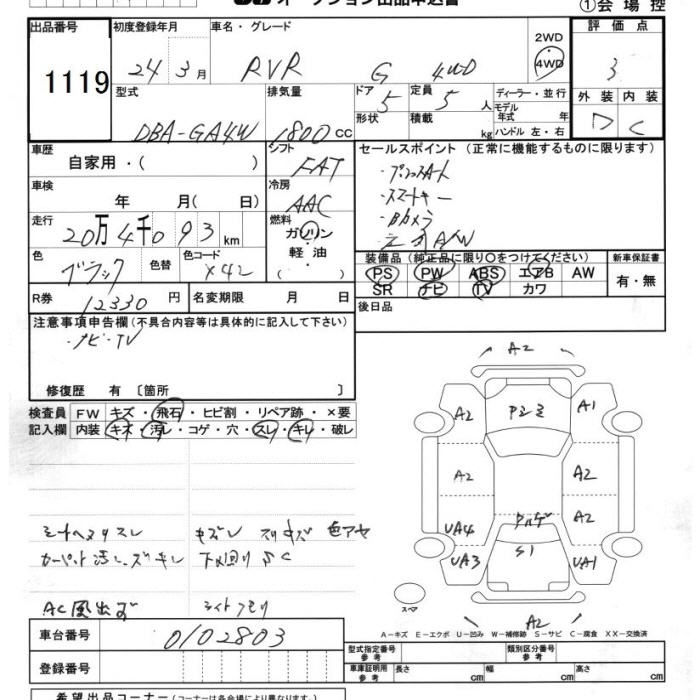 オークション出品申込書
①会場控
出品番号 初度登録年月 車名・グレード 2WD 評価点
1119 24年 3月 RVR G 4WD 4WD 3
型式 排気量 ドア 5 定員 5人 ディーラー・並行 外装 内装
DBA-GA4W 1800cc 形状 積載 kg モデル年式 年 D C
ハンドル 左・右
車歴 シフト セールスポイント (正常に機能するものに限ります)
自家用・( ) FAT
・スマートキー
車検 冷房 ・Bカメラ
年 月(日) AAC
走行 燃料
20万4千093km ガソリン・軽油
装備品 (純正品に限り○をつけてください) 新車保証書
色 色替 色コード PS PW ABS エアB AW 有・無
ブラック X42 SR ナビ TV カワ
R券 12330円 名変期限 月 日 後日品
注意事項申告欄(不具合内容等は具体的に記入して下さい)
・ナビ・TV
修復歴 有 〔箇所 〕
検査員 FW キズ・飛石・ヒビ割・リペア跡・×要
記入欄 内装 キズ・汚レ・コゲ・穴・スレ・キレ・破レ
A2
A2 A1
A2 A2
A2
UA4 S1
UA3 UA1
スペア
A2
カーペット汚レ・ズ キレ 下回りSC
AC風出ず ライトクモリ
A-キズ E-エクボ U-凹み W-補修跡 S-サビ C-腐食 XX-交換済
車台番号 0102803 型式指定番号 参考 類別区分番号 参考
登録番号 車庫証明用 参考 長さ cm 幅 cm 高さ cm
希望出品コーナー(コーナーは各会場により異なります)